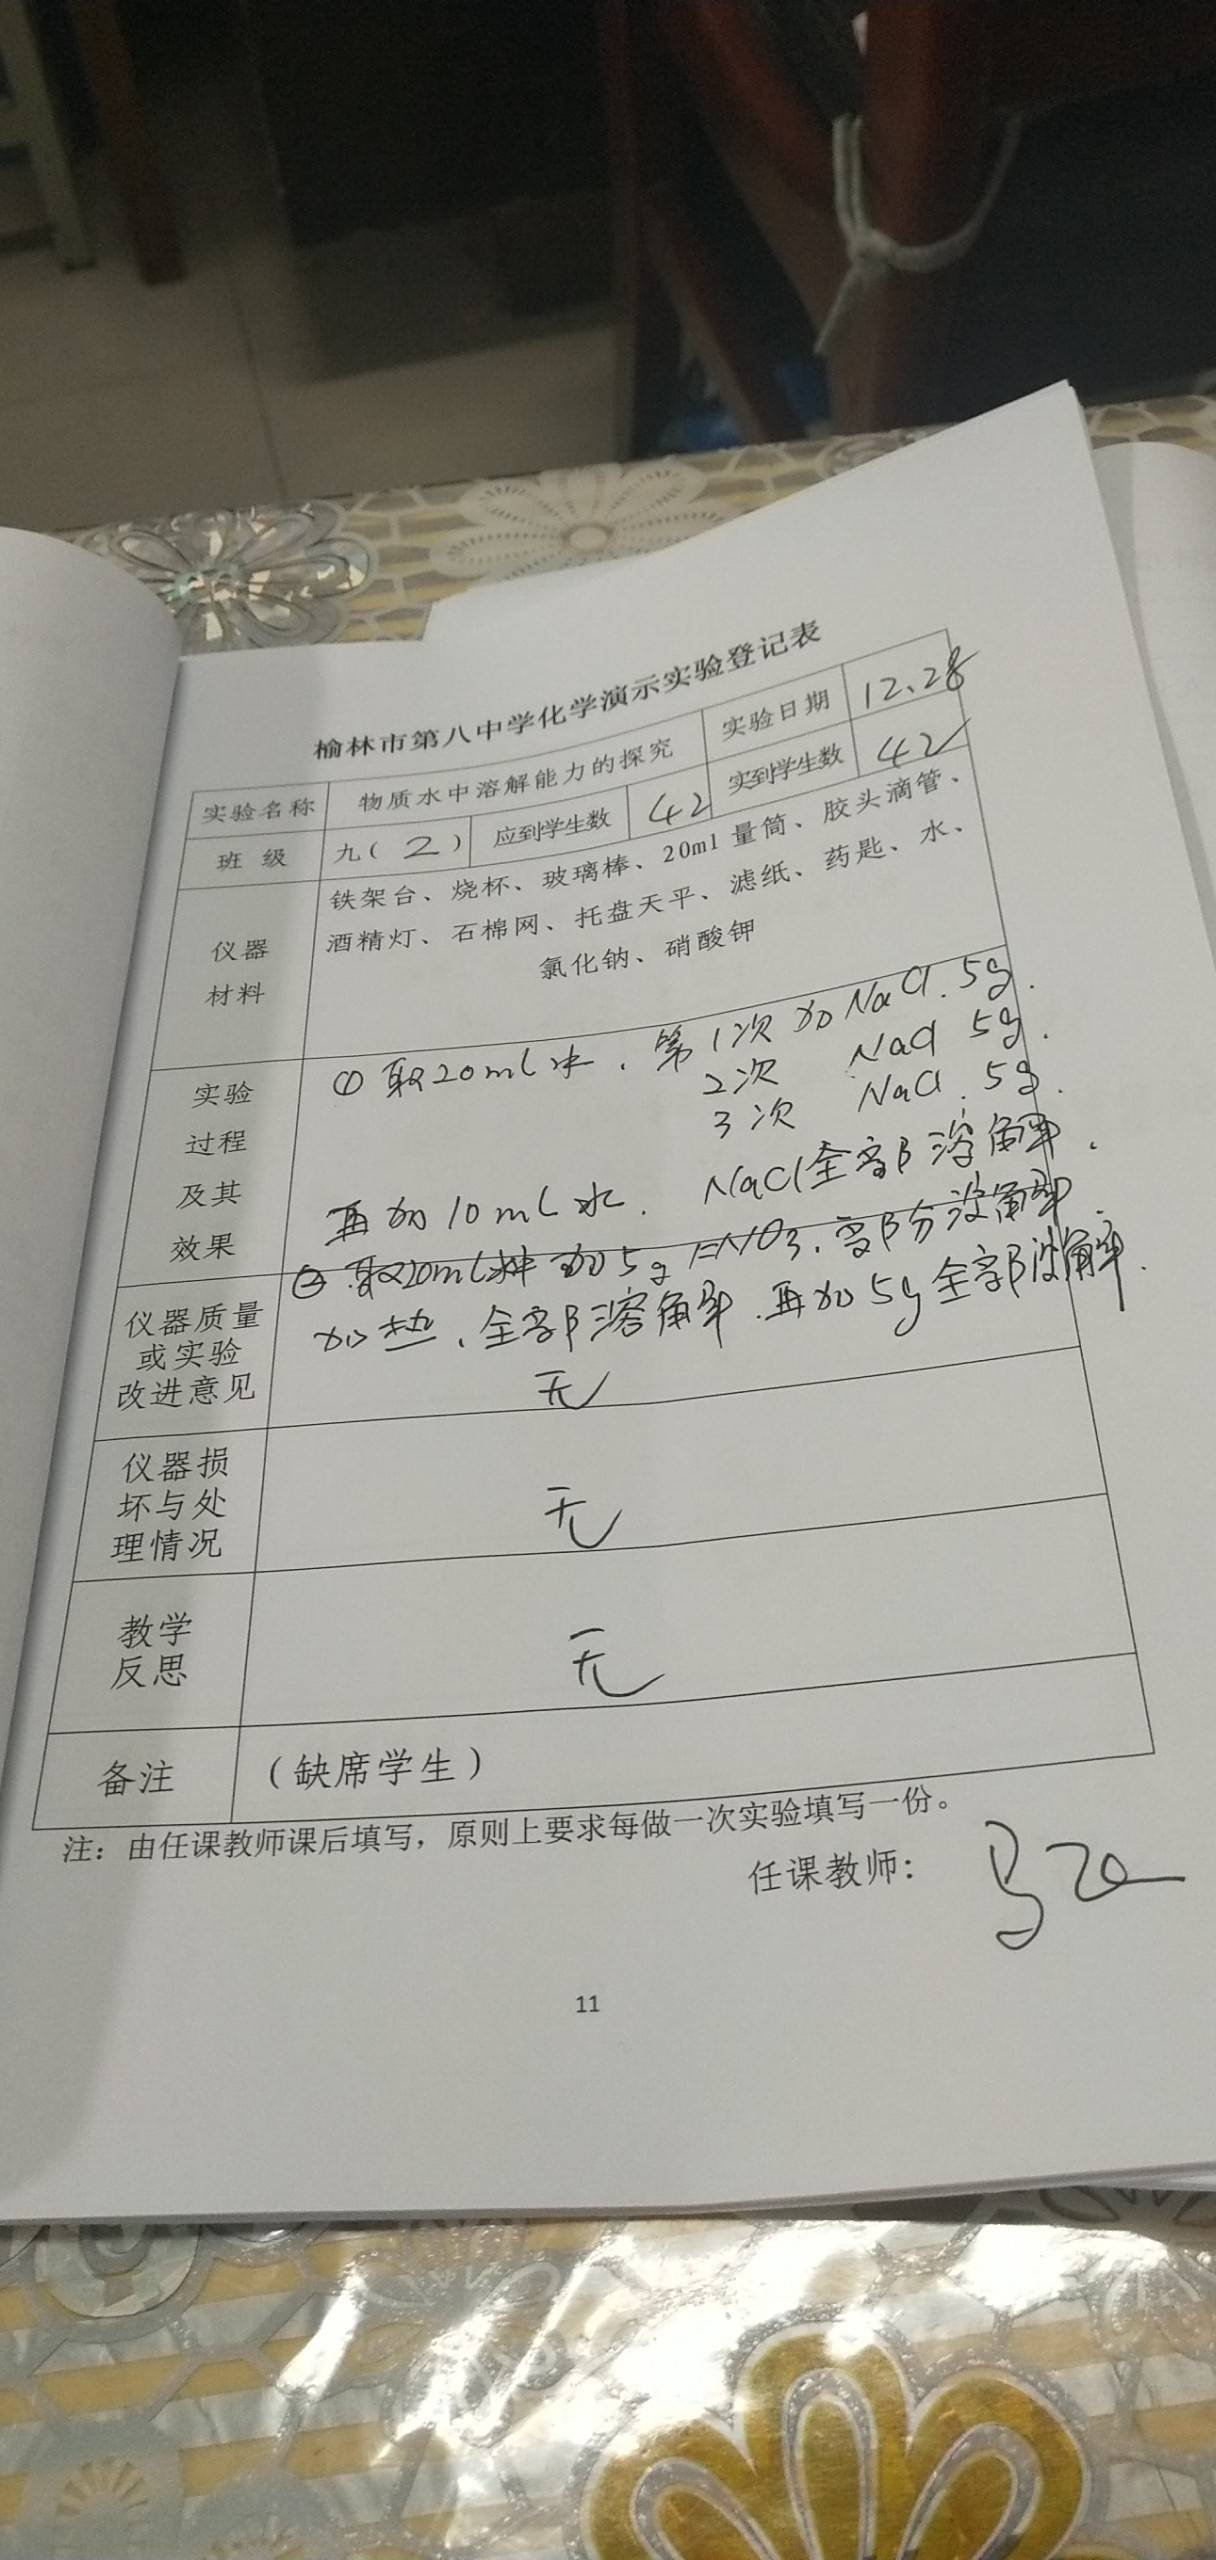 榆林市第八中学化学演示实验登记表
实验名称 物质水中溶解能力的探究 实验日期 12.28
班 级 九( 2 ) 应到学生数 42 实到学生数 42
仪器
材料
铁架台、烧杯、玻璃棒、20ml 量筒、胶头滴管、
酒精灯、石棉网、托盘天平、滤纸、药匙、水、
氯化钠、硝酸钾
实验
过程
及其
效果
① 取20mL水.第1次加NaCl.5g.
2次 NaCl 5g.
3次 NaCl.5g.
再加10mL水. NaCl全部溶解.
② 取20mL 加5g KNO3.部分没解
加热、全部溶解.再加5g全部没解.
仪器质量
或实验
改进意见
无
仪器损
坏与处
理情况
无
教学
反思
无
备注 （缺席学生）
注：由任课教师课后填写，原则上要求每做一次实验填写一份。
任课教师：
11